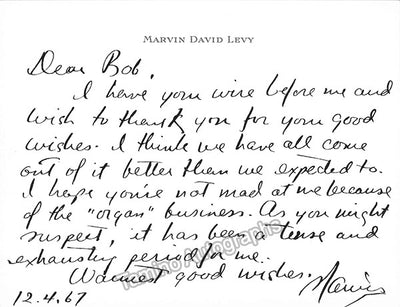 MARVIN DAVID LEVY
Dear Bob,
I have your wire before me and
wish to thank you for your good
wishes. I think we have all come
out of it better than we expected to.
I hope you're not mad at me because
of the "organ" business. As you might
suspect, it has been a tense and
exhausting period for me.
Warmest good wishes.
Marvin
12.4.67
Tamino Autographs